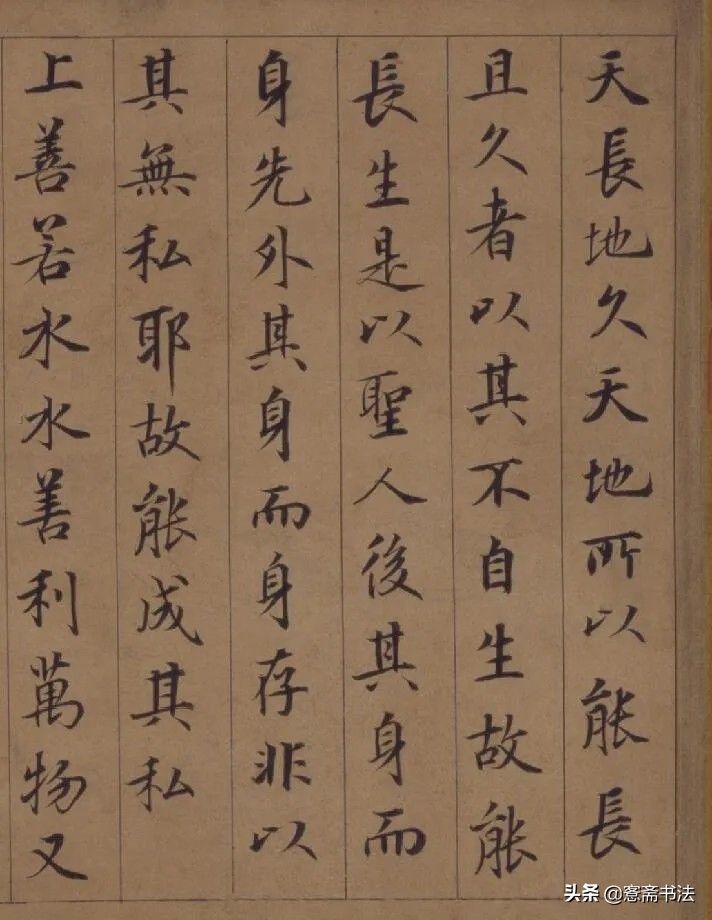 天長地久天地所以能長
且久者以其不自生故能
長生是以聖人後其身而
身先外其身而身存非以
其無私耶故能成其私
上善若水水善利萬物又
头条@愙斋书法